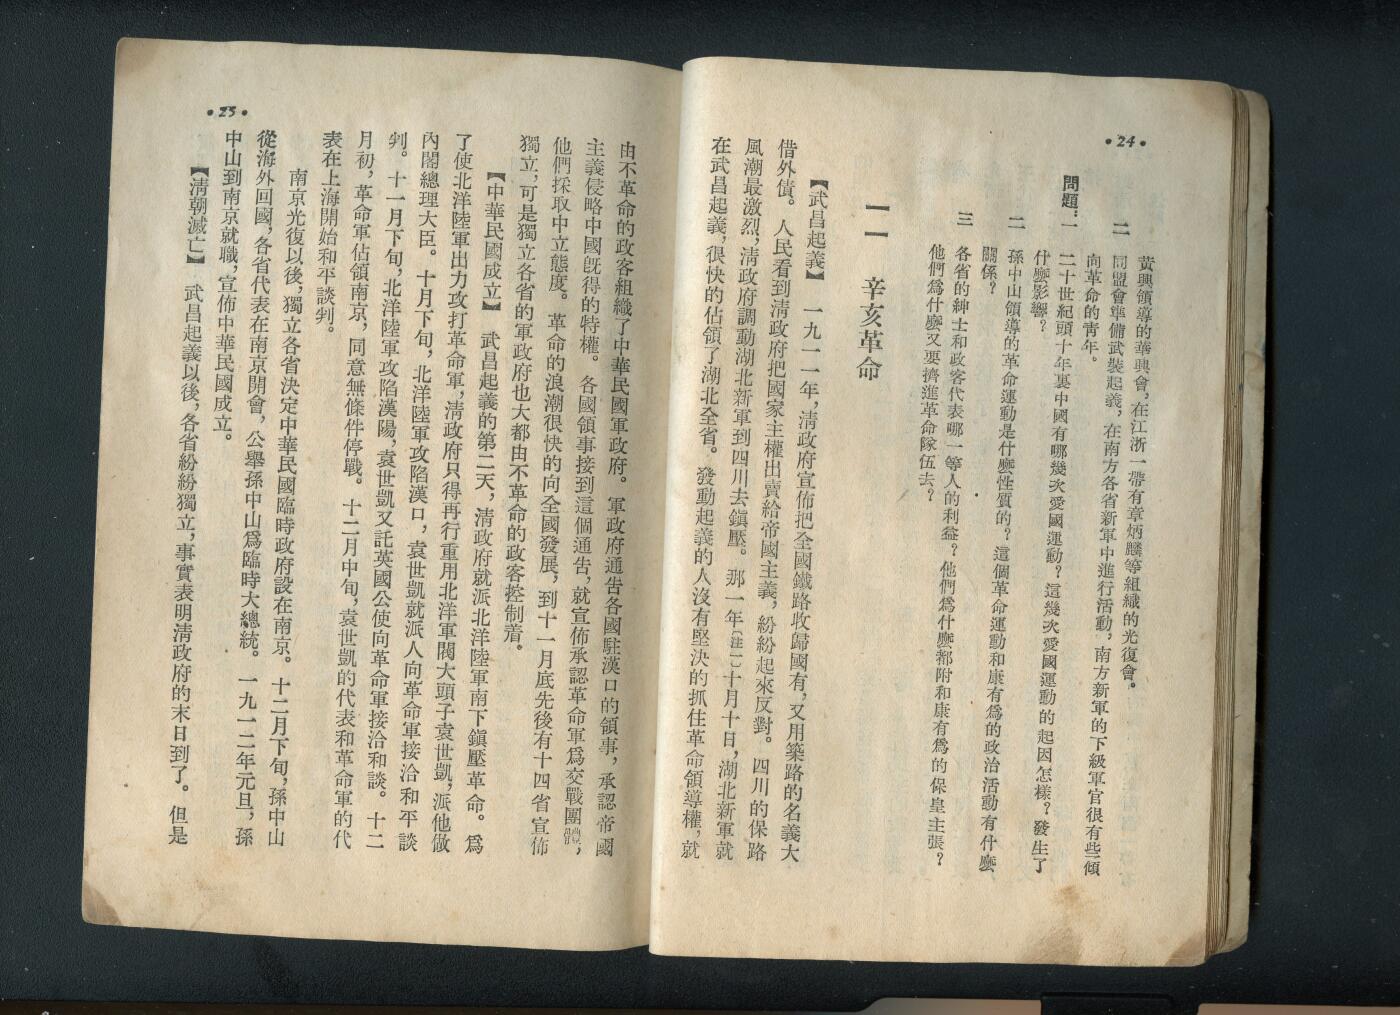 •24•
二　黃興領導的華興會，在江浙一帶有章炳麟等組織的光復會。
同盟會準備武裝起義，在南方各省新軍中進行活動，南方新軍的下級軍官很有些傾
向革命的靑年。
問題：一　二十世紀頭十年裏中國有哪幾次愛國運動？這幾次愛國運動的起因怎樣？發生了
什麽影響？
二　孫中山領導的革命運動是什麽性質的？這個革命運動和康有爲的政治活動有什麽
關係？
三　各省的紳士和政客代表哪一等人的利益？他們爲什麽都附和康有爲的保皇主張？
他們爲什麽又要擠進革命隊伍去？
一一　辛亥革命
【武昌起義】　一九一一年，淸政府宣佈把全國鐵路收歸國有，又用築路的名義大
借外債。人民看到淸政府把國家主權出賣給帝國主義，紛紛起來反對。四川的保路
風潮最激烈，淸政府調動湖北新軍到四川去鎭壓。那一年〔注一〕十月十日，湖北新軍就
在武昌起義，很快的佔領了湖北全省。發動起義的人沒有堅決的抓住革命領導權，就
•25•
由不革命的政客組織了中華民國軍政府。軍政府通告各國駐漢口的領事，承認帝國
主義侵略中國旣得的特權。各國領事接到這個通告，就宣佈承認革命軍爲交戰團體，
他們採取中立態度。革命的浪潮很快的向全國發展，到十一月底先後有十四省宣佈
獨立，可是獨立各省的軍政府也大都由不革命的政客控制着。
【中華民國成立】　武昌起義的第二天，淸政府就派北洋陸軍南下鎭壓革命。爲
了使北洋陸軍出力攻打革命軍，淸政府只得再行重用北洋軍閥大頭子袁世凱，派他做
內閣總理大臣。十月下旬，北洋陸軍攻陷漢口，袁世凱就派人向革命軍接洽和平談
判。十一月下旬，北洋陸軍攻陷漢陽，袁世凱又託英國公使向革命軍接洽和談。十二
月初，革命軍佔領南京，同意無條件停戰。十二月中旬，袁世凱的代表和革命軍的代
表在上海開始和平談判。
南京光復以後，獨立各省決定中華民國臨時政府設在南京。十二月下旬，孫中山
從海外回國，各省代表在南京開會，公舉孫中山爲臨時大總統。一九一二年元旦，孫
中山到南京就職，宣佈中華民國成立。
【淸朝滅亡】　武昌起義以後，各省紛紛獨立，事實表明淸政府的末日到了。但是